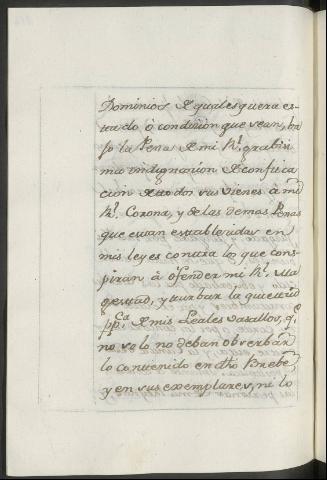 Dominios de qualesquera es-
tado ò condicion que sean, ba
jo la Pena de mi Rl. grabisi
ma indignacion de confisca
cion de todos sus vienes à mi
Rl. Corona, y de las demas Penas
que estan establecidas en
mis leyes contra lo que cons
piran à ofender mi Rl. Ma
gestad, y turbar la quietud
ppca. de mis Leales vasallos, qe.
no solo no deban observar
lo contenido en dho Brebe,
y en sus exemplares, ni lo